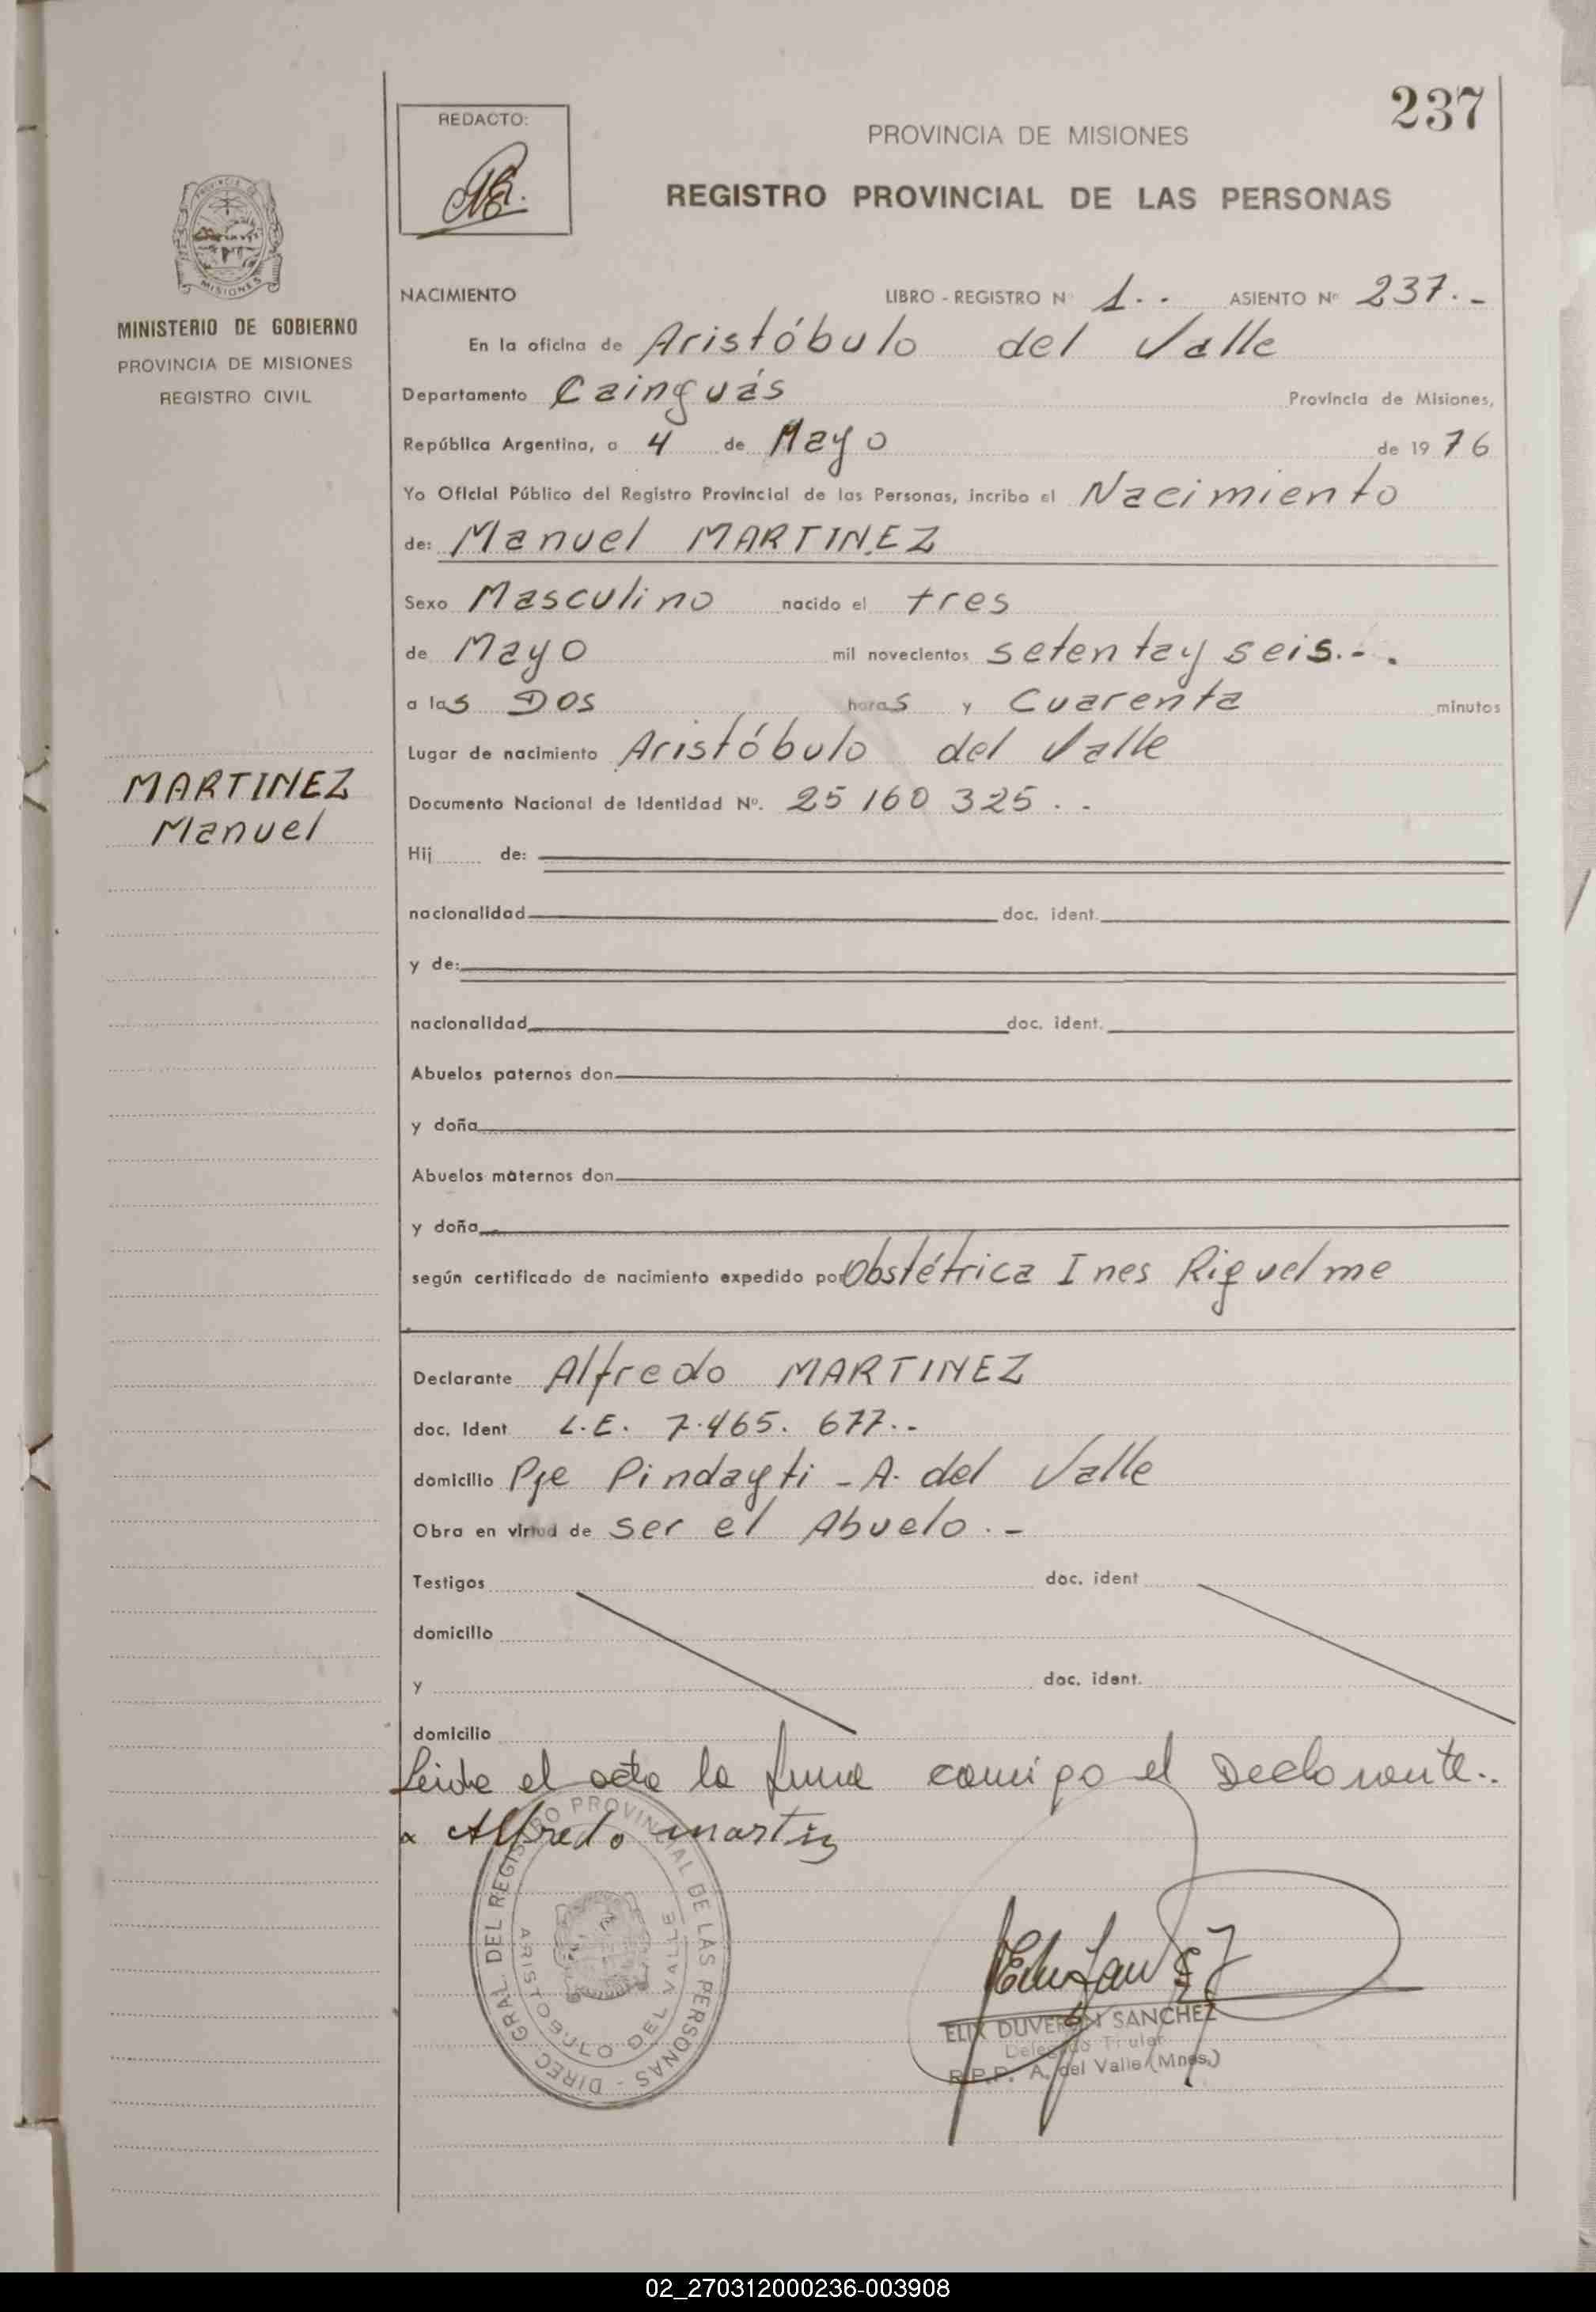 237
REDACTO:
PROVINCIA DE MISIONES
REGISTRO PROVINCIAL DE LAS PERSONAS
MISIONES
MINISTERIO DE GOBIERNO
PROVINCIA DE MISIONES
REGISTRO CIVIL
NACIMIENTO LIBRO - REGISTRO Nº 1.. ASIENTO Nº 237.-
En la oficina de Aristóbulo del Valle
Departamento Cainguás Provincia de Misiones,
República Argentina, a 4 de Mayo de 1976
Yo Oficial Público del Registro Provincial de las Personas, incribo el Nacimiento
de: Manuel MARTINEZ
Sexo Masculino nacido el tres
de Mayo mil novecientos setenta y seis.-.
a las Dos horas y Cuarenta minutos
Lugar de nacimiento Aristóbulo del Valle
MARTINEZ
Manuel
Documento Nacional de Identidad Nº. 25 160 325..
Hij de:
nacionalidad doc. ident.
y de:
nacionalidad doc. ident.
Abuelos paternos don
y doña
Abuelos maternos don
y doña
según certificado de nacimiento expedido por Obstétrica Ines Riquelme
Declarante Alfredo MARTINEZ
doc. Ident L.E. 7.465.677.-
domicilio Pje Pindayti - A. del Valle
Obra en virtud de ser el Abuelo.-
Testigos doc. ident
domicilio
y doc. ident.
domicilio
Leida el acta la firma conmigo el Declarante..
Alfredo Martinz
DIREC. GRAL. DEL REGISTRO PROVINCIAL DE LAS PERSONAS -
ARISTOBULO DEL VALLE
ELIX DUVERON SANCHEZ
Delegado Titular
R.P.P. A. del Valle (Mnes.)
02_270312000236-003908